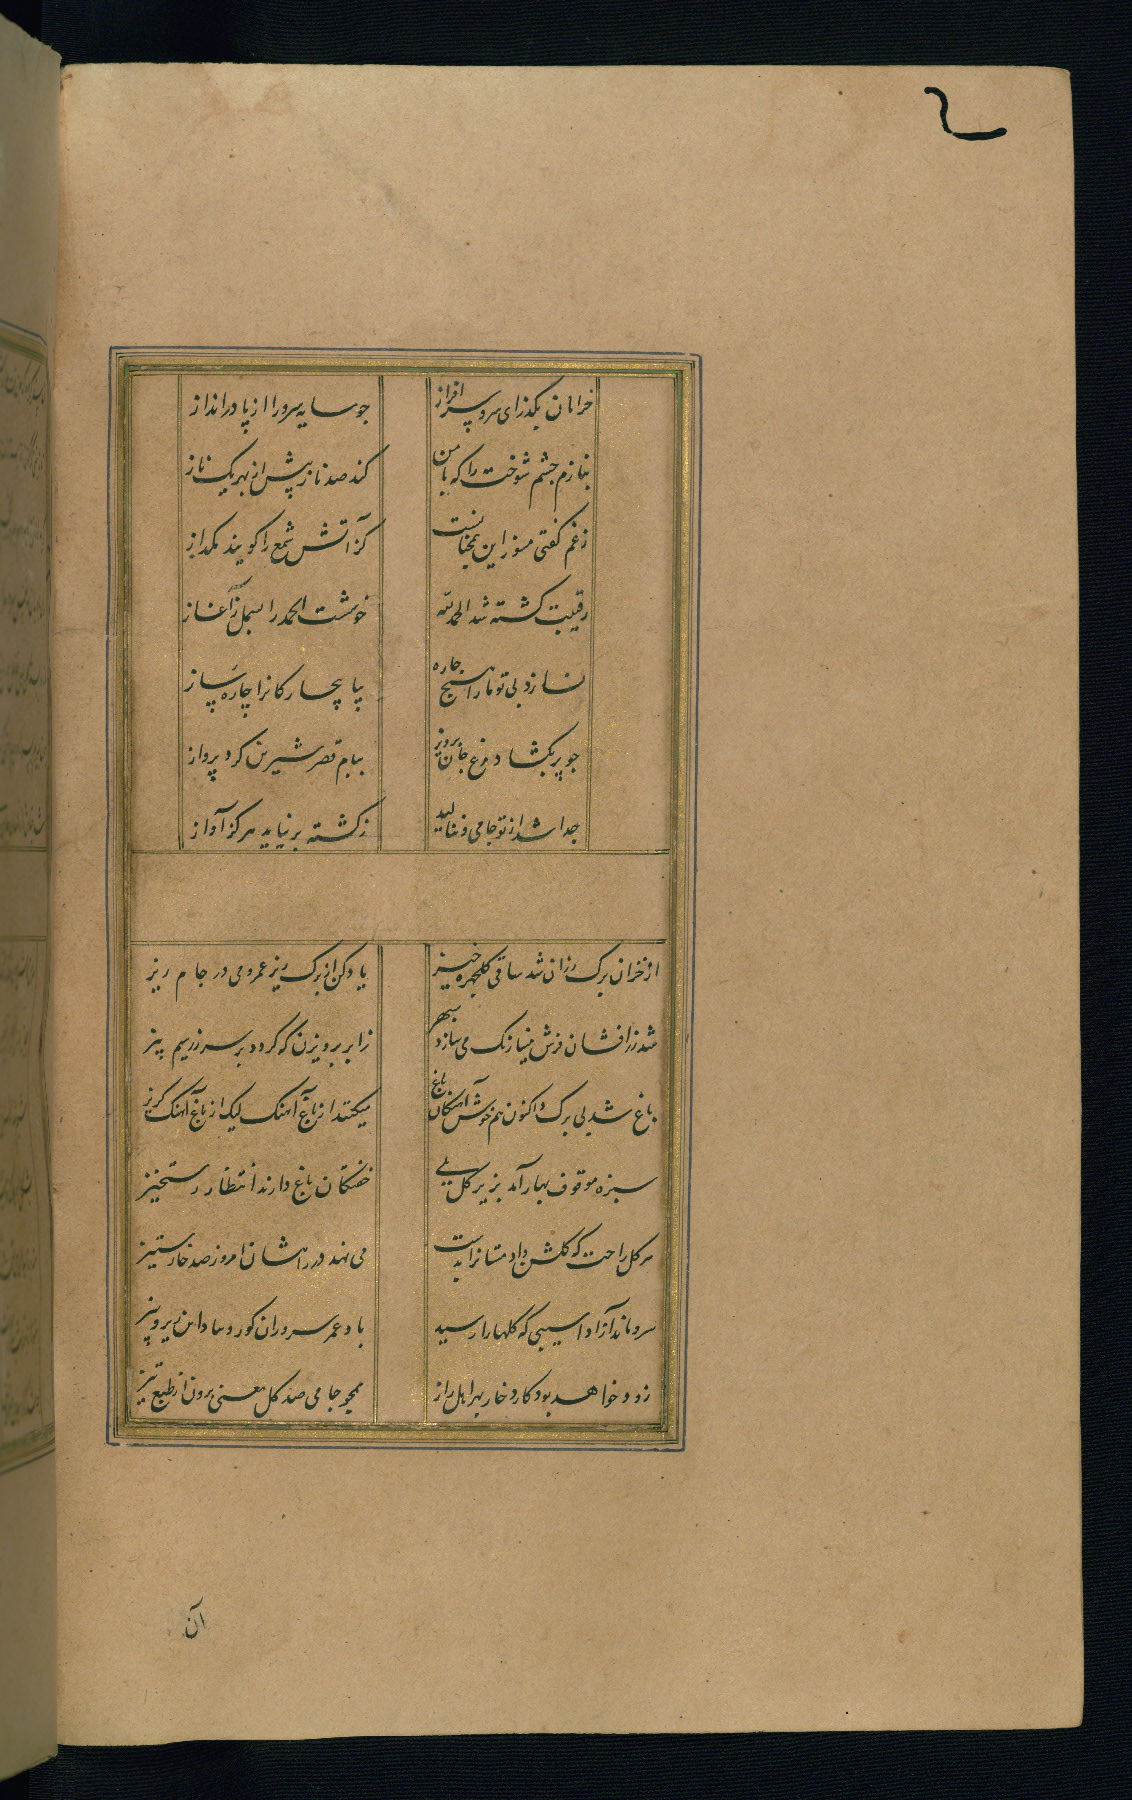 خرامان بگذر ای سرو سرافراز
چو سایه سرو را از پا درانداز
بنازم چشم شوخت را که با من
کند صد ناز پیش از بهر یک ناز
زغم گفتی مسوز این همچنانست
کز آتش شمع را گویند مگداز
رقیبت کشته شد الحمد لله
خوشست الحمد را بسمل ز آغاز
نسازد بی تو ما را هیچ چاره
بیا بیچارکانرا چاره ساز
چو پر بگشاد مرغ جان پرویز
ببام قصر شیرین کرد پرواز
جدا شد از تو جامی و ننالید
ز کشته بر نیاید هرگز آواز
از خزان برک رزان شد ساقی گلچهره خیز
یاد کن از برک ریز عمر و می در جام ریز
شد زرافشان فرش مینا زنک می سازد سپهر
ز ابر پرویزن که گردد بر سر زر سیم بیز
باغ شد بی برک و اکنون هم خوش آهنگان باغ
میکنند از باغ آهنک لیک از باغ آهنک گریز
سبزه موقوف بهار آمد بزیر گل بلی
خفتکان باغ دارند انتظار رستخیز
هر گل راحت که گلشن داد مشتانرا بدست
می نهد در راهشان امروز صد خار ستیز
سرو ماند آزاد از آسیبی که گلها را رسید
باد عمر سروران کو رو بباد این زیر و بیز
زود خواهد بود کارد خار بهر اهل راز
همچو جامی صد گل معنی برون از طبع تیز
آن